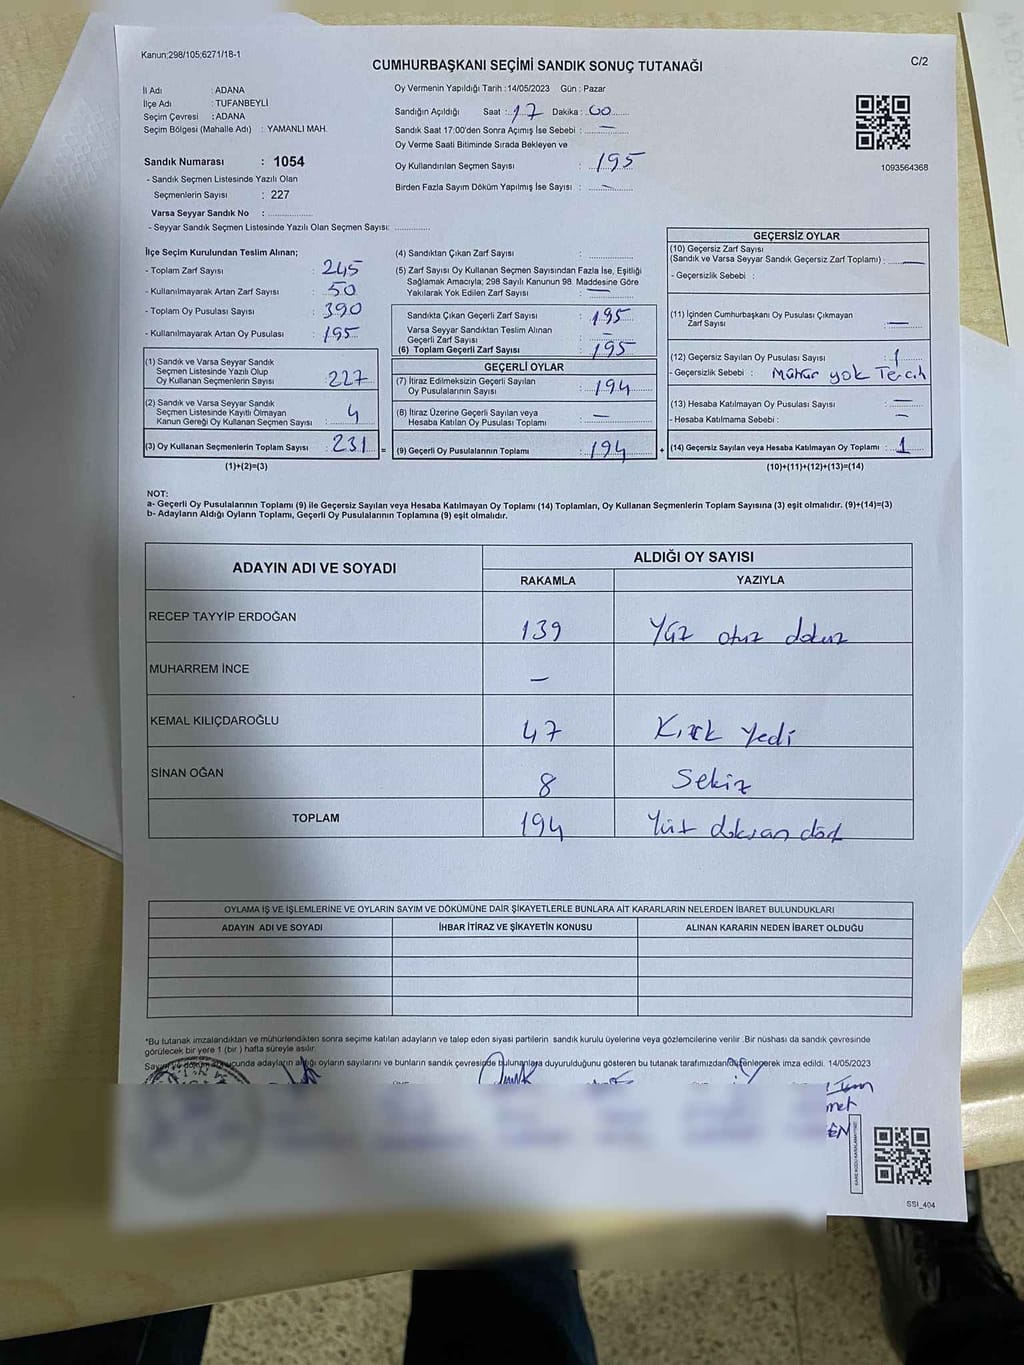 Kanun;298/105;6271/18-1
C/2
CUMHURBAŞKANI SEÇİMİ SANDIK SONUÇ TUTANAĞI
İl Adı : ADANA
İlçe Adı : TUFANBEYLİ
Seçim Çevresi : ADANA
Seçim Bölgesi (Mahalle Adı) : YAMANLI MAH.
Sandık Numarası : 1054
- Sandık Seçmen Listesinde Yazılı Olan
Seçmenlerin Sayısı : 227
Varsa Seyyar Sandık No : ..............
- Seyyar Sandık Seçmen Listesinde Yazılı Olan Seçmen Sayısı: ..............
Oy Vermenin Yapıldığı Tarih : 14/05/2023 Gün : Pazar
Sandığın Açıldığı Saat : 17 Dakika : 00
Sandık Saat 17:00'den Sonra Açımış İse Sebebi : —
Oy Verme Saati Bitiminde Sırada Bekleyen ve
Oy Kullandırılan Seçmen Sayısı : 195
Birden Fazla Sayım Döküm Yapılmış İse Sayısı : —
1093564368
İlçe Seçim Kurulundan Teslim Alınan;
- Toplam Zarf Sayısı : 245
- Kullanılmayarak Artan Zarf Sayısı : 50
- Toplam Oy Pusulası Sayısı : 390
- Kullanılmayarak Artan Oy Pusulası : 195
(1) Sandık ve Varsa Seyyar Sandık
Seçmen Listesinde Yazılı Olup
Oy Kullanan Seçmenlerin Sayısı : 227
(2) Sandık ve Varsa Seyyar Sandık
Seçmen Listesinde Kayıtlı Olmayan
Kanun Gereği Oy Kullanan Seçmen Sayısı : 4
(3) Oy Kullanan Seçmenlerin Toplam Sayısı : 231 =
(1)+(2)=(3)
(4) Sandıktan Çıkan Zarf Sayısı : ..............
(5) Zarf Sayısı Oy Kullanan Seçmen Sayısından Fazla İse, Eşitliği
Sağlamak Amacıyla; 298 Sayılı Kanunun 98. Maddesine Göre
Yakılarak Yok Edilen Zarf Sayısı : —
Sandıkta Çıkan Geçerli Zarf Sayısı : 195
Varsa Seyyar Sandıktan Teslim Alınan
Geçerli Zarf Sayısı : —
(6) Toplam Geçerli Zarf Sayısı : 195
GEÇERLİ OYLAR
(7) İtiraz Edilmeksizin Geçerli Sayılan
Oy Pusulalarının Sayısı : 194
(8) İtiraz Üzerine Geçerli Sayılan veya
Hesaba Katılan Oy Pusulası Toplamı : —
(9) Geçerli Oy Pusulalarının Toplamı : 194 +
GEÇERSİZ OYLAR
(10) Geçersiz Zarf Sayısı
(Sandık ve Varsa Seyyar Sandık Geçersiz Zarf Toplamı) : —
- Geçersizlik Sebebi :
(11) İçinden Cumhurbaşkanı Oy Pusulası Çıkmayan
Zarf Sayısı : —
(12) Geçersiz Sayılan Oy Pusulası Sayısı : 1
- Geçersizlik Sebebi : Mühür yok Tercih
(13) Hesaba Katılmayan Oy Pusulası Sayısı : —
- Hesaba Katılmama Sebebi : —
(14) Geçersiz Sayılan veya Hesaba Katılmayan Oy Toplamı : 1
(10)+(11)+(12)+(13)=(14)
NOT:
a- Geçerli Oy Pusulalarının Toplamı (9) ile Geçersiz Sayılan veya Hesaba Katılmayan Oy Toplamı (14) Toplamları, Oy Kullanan Seçmenlerin Toplam Sayısına (3) eşit olmalıdır. (9)+(14)=(3)
b- Adayların Aldığı Oyların Toplamı, Geçerli Oy Pusulalarının Toplamına (9) eşit olmalıdır.
ADAYIN ADI VE SOYADI ALDIĞI OY SAYISI
RAKAMLA YAZIYLA
RECEP TAYYİP ERDOĞAN 139 Yüz otuz dokuz
MUHARREM İNCE —
KEMAL KILIÇDAROĞLU 47 Kırk Yedi
SİNAN OĞAN 8 Sekiz
TOPLAM 194 Yüz doksan dört
OYLAMA İŞ VE İŞLEMLERİNE VE OYLARIN SAYIM VE DÖKÜMÜNE DAİR ŞİKAYETLERLE BUNLARA AİT KARARLARIN NELERDEN İBARET BULUNDUKLARI
ADAYIN ADI VE SOYADI İHBAR İTİRAZ VE ŞİKAYETİN KONUSU ALINAN KARARIN NEDEN İBARET OLDUĞU
*Bu tutanak imzalandıktan ve mühürlendikten sonra seçime katılan adayların ve talep eden siyasi partilerin sandık kurulu üyelerine veya gözlemcilerine verilir .Bir nüshası da sandık çevresinde
görülecek bir yere 1 (bir ) hafta süreyle asılır.
Sayım ve dökümü sonucunda adayların aldığı oyların sayılarını ve bunların sandık çevresinde bulunanlara duyurulduğunu gösteren bu tutanak tarafımızdan düzenlenerek imza edildi. 14/05/2023
SSI_404